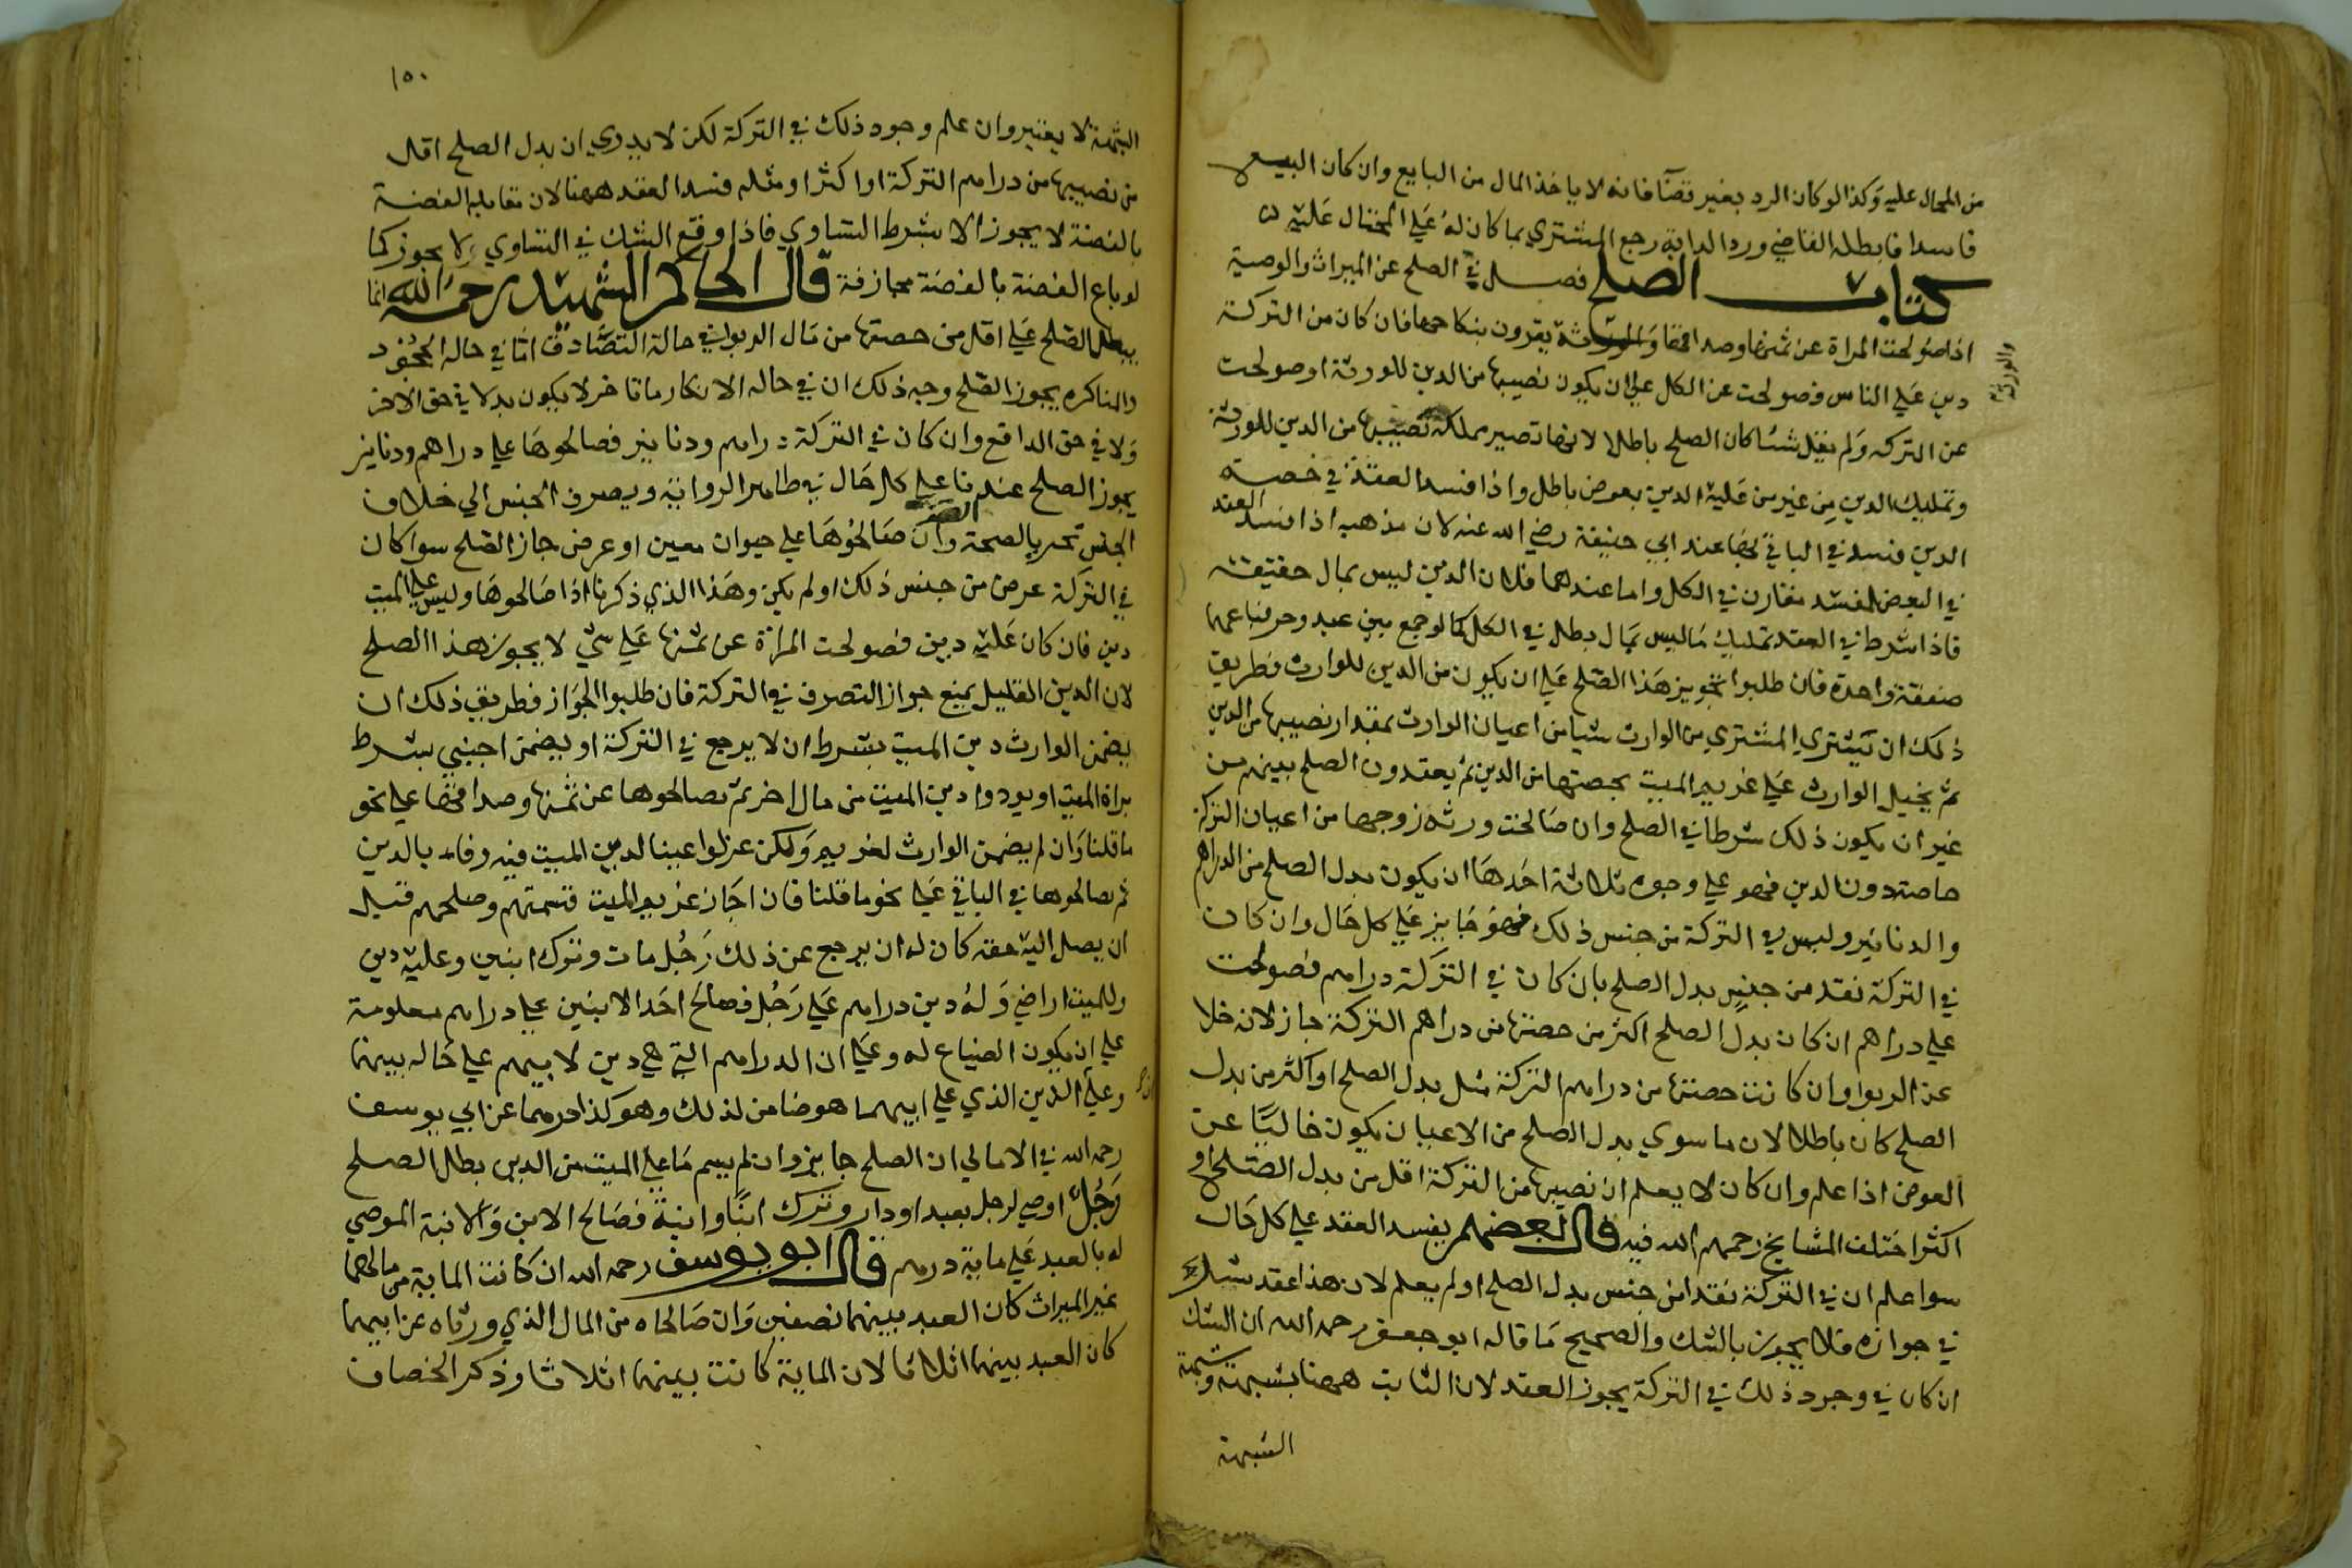 من المحال عليه وكذا لو كان الرد بغير قضآ فانه لا ياخذ المال من البايع وان كان البيع
فاسدا فابطله القاضي ورد الدابة رجع المشتري بما كان له علي المحتال عليه
كتاب الصلح فصل في الصلح عن الميراث والوصية
اذا صولحت المراة عن ثمنها وصداقها والورثة يقرون بنكاحها فان كان من التركة
والورثة
دين علي الناس فصولحت عن الكل علي ان يكون نصيبها من الدين للورثة او صولحت
عن التركه ولم يقل شيئا كان الصلح باطلا لانها تصير مملكة نصيبها من الدين للورثة
وتمليك الدين من غير من عليه الدين بعوض باطل واذا فسد العقد في حصة
الدين فسد في الباقي ايضا عند ابي حنيفة رضي الله عنه لان مذهبه اذا فسد العقد
في البعض لمفسد مقارن في الكل واما عندهما فلان الدين ليس بمال حقيقة
فاذا شرط في العقد تمليك ما ليس بمال بطل في الكل كما لو جمع بين عبد وحر فباعهما
صفقة واحدة فان طلبوا تجويز هذا الصلح علي ان يكون من الدين للوارث فطريق
ذلك ان يشتري المشتري من الوارث شيا من اعيان الوارث بمقدار نصيبها من الدين
ثم يحيل الوارث علي غريم الميت بحصتها من الدين ثم يعقدون الصلح بينهم من
غير ان يكون ذلك شرطا في الصلح وان صالحت ورثه زوجها من اعيان التركة
خاصة دون الدين فهو علي وجوه ثلاثة احدها ان يكون بدل الصلح من الدراهم
والدنانير وليس في التركة من جنس ذلك فهو جايز علي كل حال وان كان
في التركة نقد من جنس بدل الصلح بان كان في التركة دراهم فصولحت
علي دراهم ان كان بدل الصلح اكثر من حصتها من دراهم التركة جاز لانه خلا
عن الربوا وان كانت حصتها من دراهم التركة مثل بدل الصلح او اكثر من بدل
الصلح كان باطلا لان ما سوي بدل الصلح من الاعيان يكون خاليا عن
العوض اذا علم وان كان لا يعلم ان نصيبها من التركة اقل من بدل الصلح او
اكثر اختلف المشايخ رحمهم الله فيه قال بعضهم يفسد العقد علي كل حال
سوا علم ان في التركة نقدا من جنس بدل الصلح او لم يعلم لان هذا عقد شك
في جوازه فلا يجوز بالشك والصحيح ما قاله ابو جعفر رحمه الله ان الشك
ان كان في وجود ذلك في التركة يجوز العقد لان الثابت ههنا شبهة وشبهة
الشبهة
١٥٠
الشبهة لا يعتبر وان علم وجود ذلك في التركة لكن لا يدري ان بدل الصلح اقل
من نصيبها من دراهم التركة او اكثر او مثله فسد العقد ههنا لان مقابلة الفضة
بالفضة لا يجوز الا بشرط التساوي فاذا وقع الشك في التساوي لا يجوز كما
لو باع الفضة بالفضة مجازفة قال الحاكم الشهيد رحمه الله انما
يبطل الصلح علي اقل من حصتها من مال الربوا في حالة التصادق اما في حاله الجحود
والمناكره يجوز الصلح وجه ذلك ان في حاله الانكار ما ياخر لا يكون بدلا في حق الاخر
ولا في حق الدافع وان كان في التركة دراهم ودنانير فصالحوها علي دراهم ودنانير
يجوز الصلح عندنا علي كل حال في ظاهر الرواية ويصرف الجنس الي خلاف
الجنس تحريا للصحة وان صالحوها علي حيوان معين او عرض جاز الصلح سوا كان
في التركة عرض من جنس ذلك او لم يكن وهذا الذي ذكرنا اذا صالحوها وليس علي الميت
دين فان كان عليه دين فصولحت المراة عن ثمنها علي شي لا يجوز هذا الصلح
لان الدين القليل يمنع جواز التصرف في التركة فان طلبوا الجواز فطريق ذلك ان
يضمن الوارث دين الميت بشرط ان لا يرجع في التركة او يضمن اجنبي بشرط
براة الميت او يودوا دين الميت من مال اخر ثم يصالحوها عن ثمنها وصداقها علي نحو
ما قلنا وان لم يضمن الوارث لغريم ولكن عزلوا عينا لدين الميت فيه وفاء بالدين
ثم صالحوها في الباقي علي نحو ما قلنا فان اجاز غريم الميت قسمتهم وصلحهم قبل
ان يصل اليه حقه كان له ان يرجع عن ذلك رجل مات وترك ابنين وعليه دين
وللميت اراضي وله دين دراهم علي رجل فصالح احد الابنين علي دراهم معلومة
علي ان يكون الضياع له وعلي ان الدراهم التي هي دين لابيهم علي حاله بينهما
وعلي الدين الذي علي ابيهما هو ضامن لذلك وهو كذا درهما عن ابي يوسف
رحمه الله في الامالي ان الصلح جايز وان لم يسم ما علي الميت من الدين بطل الصلح
رجل اوصي لرجل بعبد او دار وترك ابنا وابنة فصالح الابن والابنة الموصي
له بالعبد علي ماية درهم قال ابو يوسف رحمه الله ان كانت الماية من مالهما
غير الميراث كان العبد بينهما نصفين وان صالحاه من المال الذي ورثاه عن ابيهما
كان العبد بينهما اثلاثا لان الماية كانت بينهما اثلاثا وذكر الخصاف